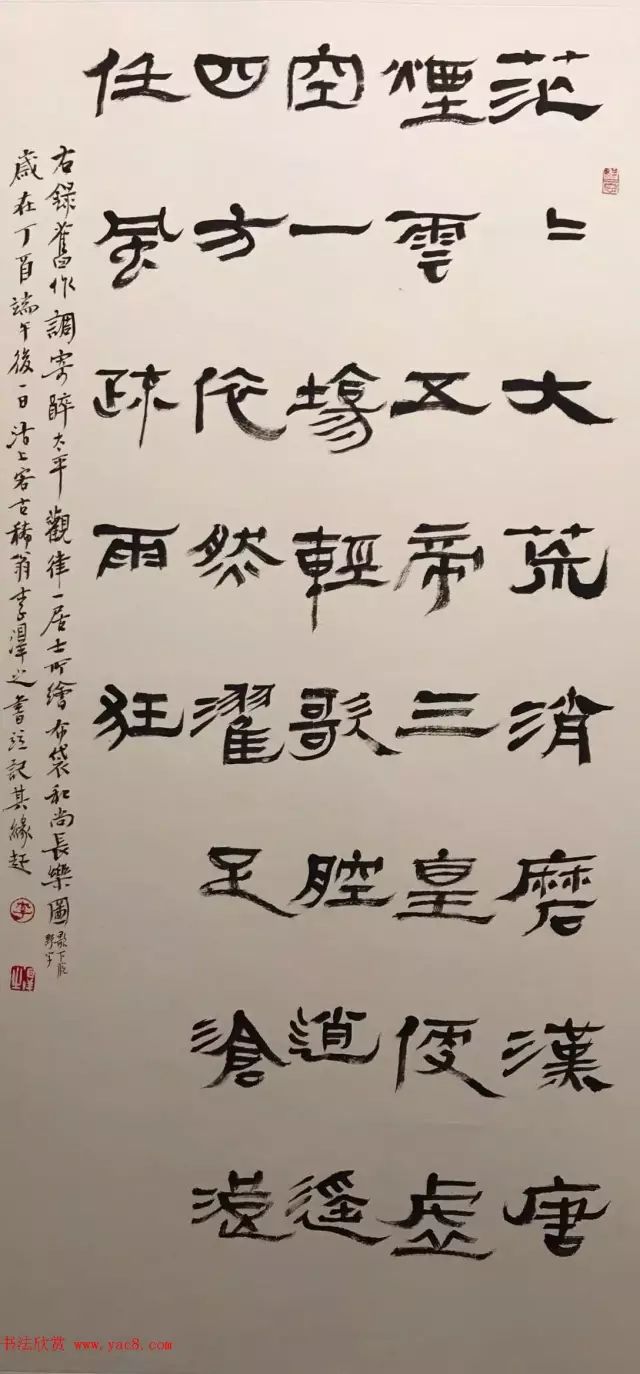 茫〻大荒消磨漢唐
煙雲五帝三皇便虛
空一場輕歌腔逍遙
四方依然濯足滄浪
任風疏雨狂
右錄舊作調寄醉太平觀律一居士所繪布袋和尚長樂圖
歌下脫野字
歲在丁酉端午後一日沽上客古稀翁李澤之書並記其緣起
李
书法欣赏 www.yac8.com